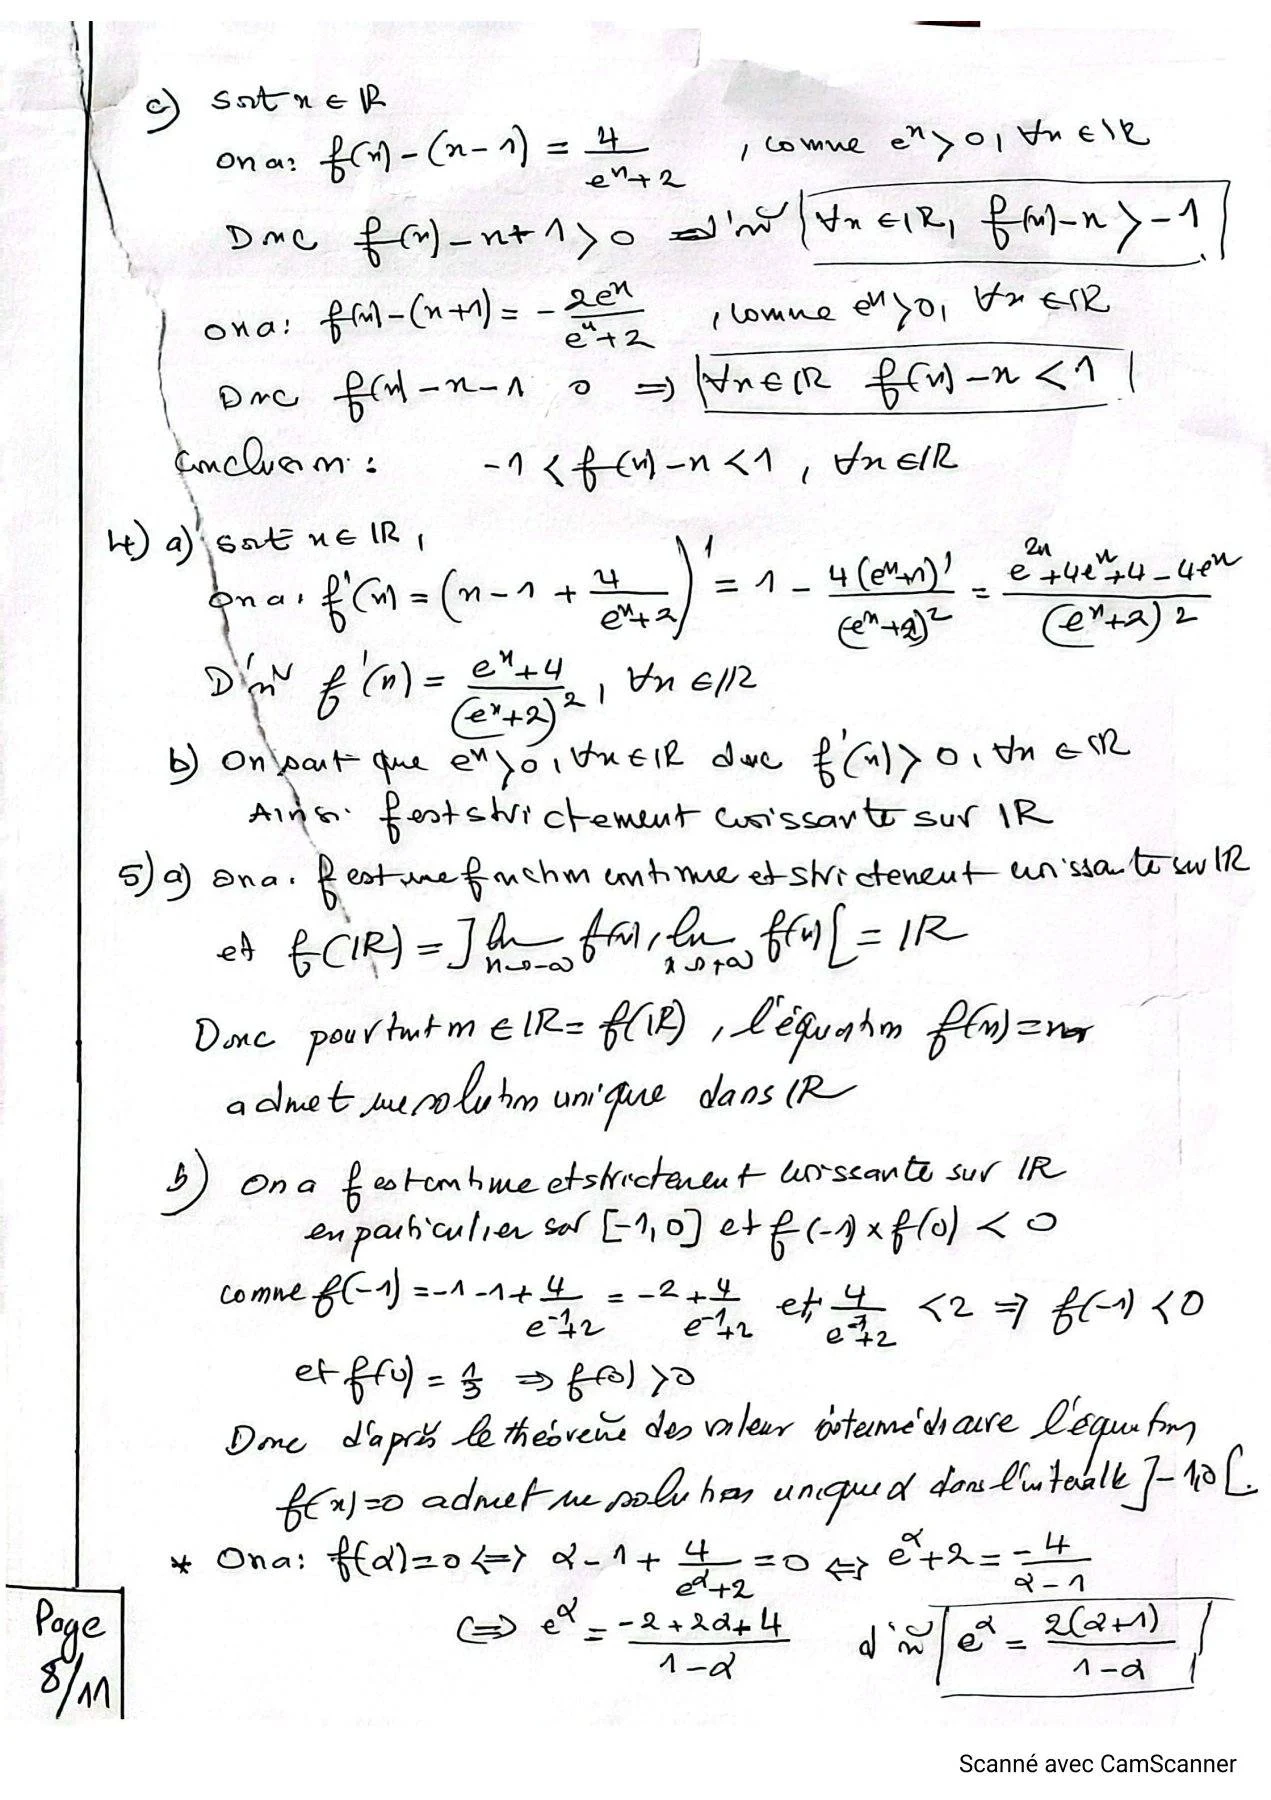 c) Soit x ∈ ℝ
On a: f(x) - (x - 1) = 4/(e^x + 2) , comme e^x > 0, ∀x ∈ ℝ
Donc f(x) - x + 1 > 0 d'où ∀x ∈ ℝ, f(x) - x > -1
on a: f(x) - (x+1) = - 2e^x/(e^x + 2) , comme e^x > 0, ∀x ∈ ℝ
Donc f(x) - x - 1 0 ⇒ ∀x ∈ ℝ f(x) - x < 1
Conclusion : -1 < f(x) - x < 1 , ∀x ∈ ℝ
4) a) soit x ∈ ℝ,
on a: f'(x) = (x - 1 + 4/(e^x + 2))' = 1 - 4(e^x+1)'/(e^x+2)^2 = (e^2x + 4e^x + 4 - 4e^x)/(e^x+2)^2
D'où f'(x) = (e^x + 4)/(e^x + 2)^2, ∀x ∈ ℝ
b) On sait que e^x > 0, ∀x ∈ ℝ donc f'(x) > 0, ∀x ∈ ℝ
Ainsi f est strictement croissante sur ℝ
5) a) on a. f est une fonction continue et strictement croissante sur ℝ
et f(ℝ) = ] lim x→-∞ f(x), lim x→+∞ f(x) [ = ℝ
Donc pour tout m ∈ ℝ = f(ℝ), l'équation f(x) = m
admet une solution unique dans ℝ
b) On a f est continue et strictement croissante sur ℝ
en particulier sur [-1, 0] et f(-1) × f(0) < 0
comme f(-1) = -1 - 1 + 4/(e^-1 + 2) = -2 + 4/(e^-1 + 2) et 4/(e^-1 + 2) < 2 ⇒ f(-1) < 0
et f(0) = 1/3 ⇒ f(0) > 0
Donc d'après le théorème des valeur intermédiaire l'équation
f(x) = 0 admet une solution unique α dans l'intervalle ]-1, 0[.
* On a: f(α) = 0 ⇔ α - 1 + 4/(e^α + 2) = 0 ⇔ e^α + 2 = -4/(α - 1)
⇔ e^α = (-2 + 2α + 4)/(1 - α) d'où e^α = 2(α+1)/(1 - α)
Page
8/11
Scanné avec CamScanner